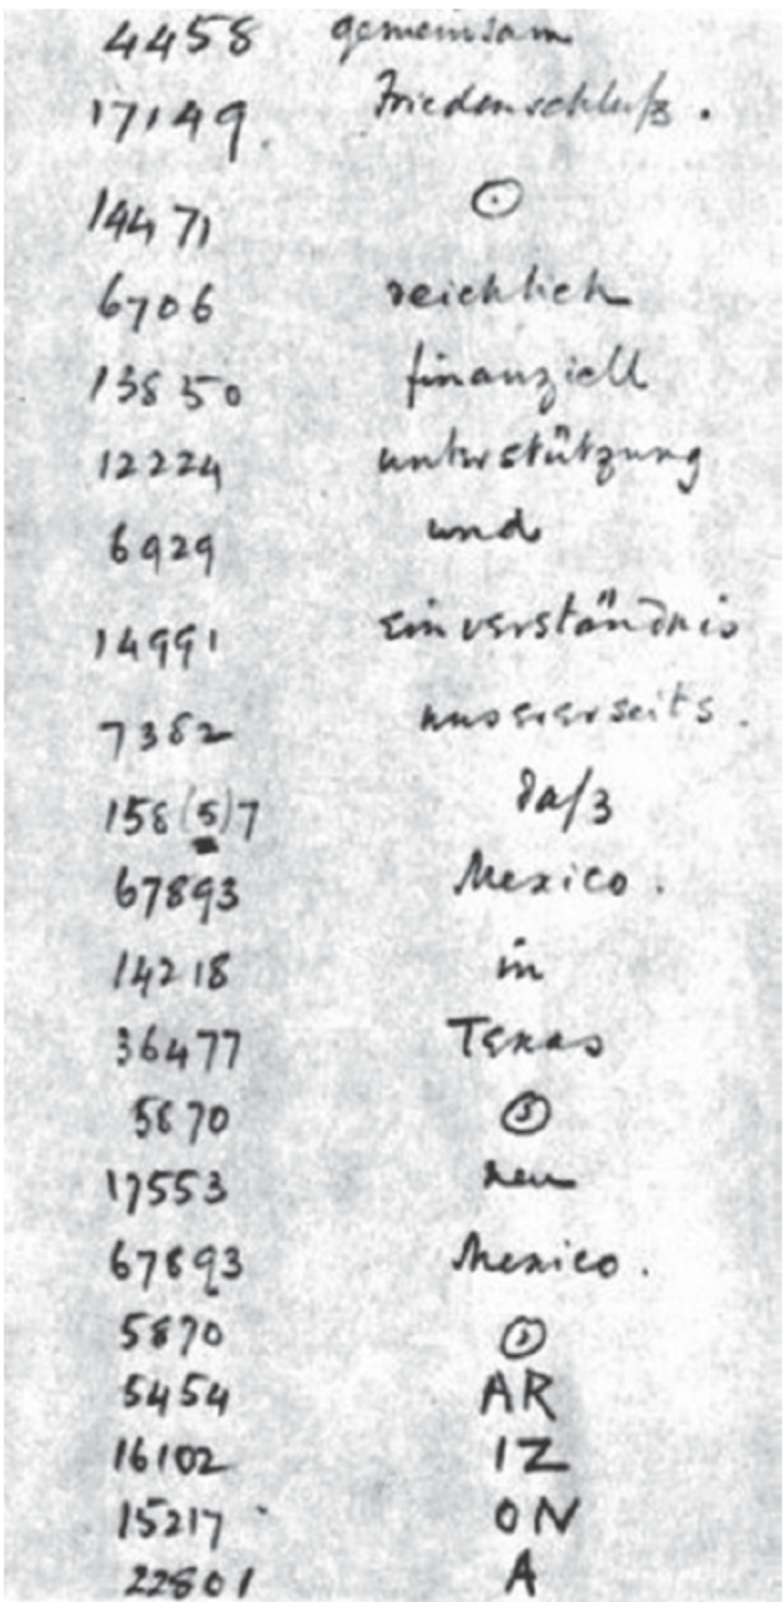 4458 gemeinsam
17149. Friedenschluß.
14471 ⊙
6706 reichlich
13850 finanziell
12224 unterstützung
6929 und
14991 einverständnis
7382 unsererseits.
158(5)7 daß
67893 Mexico.
14218 in
36477 Texas
5870 (,)
17553 neu
67893 Mexico.
5870 (,)
5454 AR
16102 IZ
15217 ON
22801 A